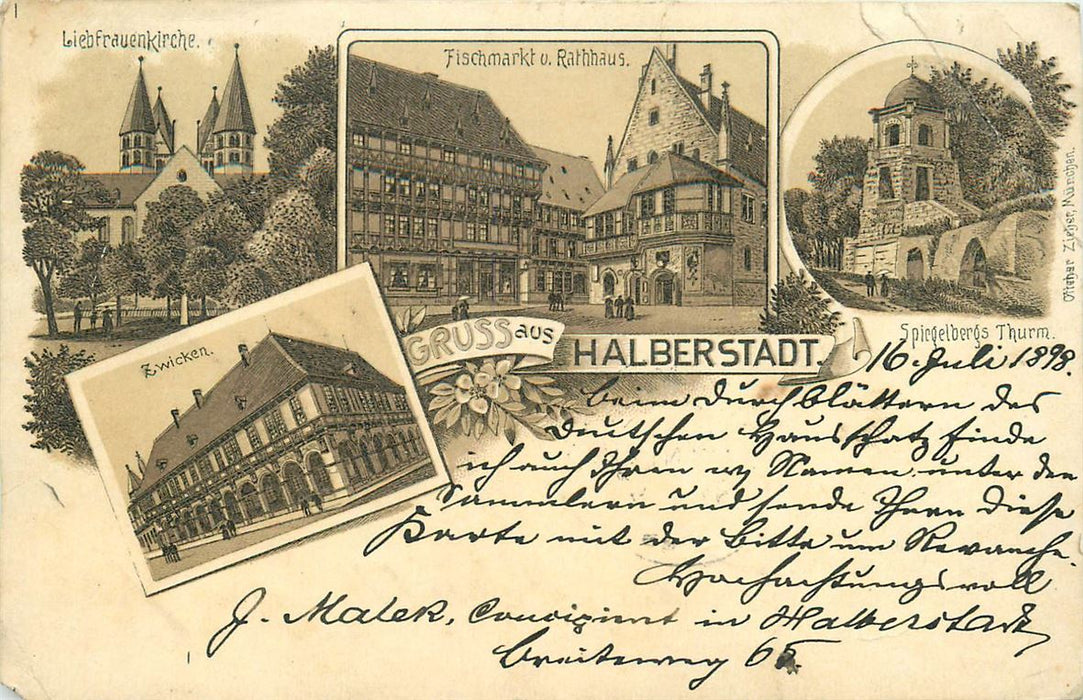 Liebfrauenkirche.
Fischmarkt u. Rathhaus.
Spiegelbergs Thurm.
Ottmar Zieher, München.
Zwicken.
GRUSS aus
HALBERSTADT.
16. Juli 1898.
beim Durchblättern des
Deutschen Hausschatz finde
ich auch Ihren Namen unter den
Sammlern und sende Ihnen diese
Karte mit der Bitte um Revanche.
Hochachtungsvoll
J. Malek, Concipient in Halberstadt
Breiteweg 65.